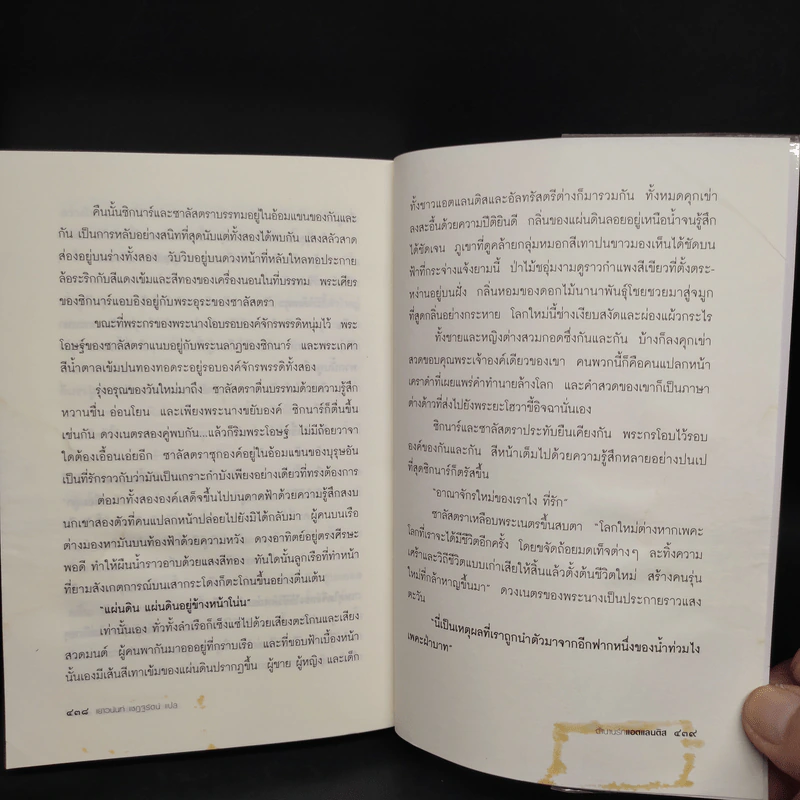 คืนนั้นซิกนาร์และซาลัสตราบรรทมอยู่ในอ้อมแขนของกันและ
กัน เป็นการหลับอย่างสนิทที่สุดนับแต่ทั้งสองได้พบกัน แสงสลัวสาด
ส่องอยู่บนร่างทั้งสอง วับวิบอยู่บนดวงหน้าที่หลับใหลทอประกาย
ล้อระริกกับสีแดงเข้มและสีทองของเครื่องนอนในที่บรรทม พระเศียร
ของซิกนาร์แอบอิงอยู่กับพระอุระของซาลัสตรา
ขณะที่พระกรของพระนางโอบรอบองค์จักรพรรดิหนุ่มไว้ พระ
โอษฐ์ของซาลัสตราแนบอยู่กับพระนลาฏของซิกนาร์ และพระเกศา
สีน้ำตาลเข้มปนทองทอดตระอยู่รอบองค์จักรพรรดิทั้งสอง
รุ่งอรุณของวันใหม่มาถึง ซาลัสตราตื่นบรรทมด้วยความรู้สึก
หวานชื่น อ่อนโยน และเพียงพระนางขยับองค์ ซิกนาร์ก็ตื่นขึ้น
เช่นกัน ดวงเนตรสองคู่พบกัน...แล้วก็ริมพระโอษฐ์ ไม่มีถ้อยวาจา
ใดต้องเอื้อนเอ่ยอีก ซาลัสตราซุกองค์อยู่ในอ้อมแขนของบุรุษอัน
เป็นที่รักราวกับว่ามันเป็นเกราะกำบังเพียงอย่างเดียวที่ทรงต้องการ
ต่อมาทั้งสององค์เสด็จขึ้นไปบนดาดฟ้าด้วยความรู้สึกสงบ
นกเขาสองตัวที่คนแปลกหน้าปล่อยไปยังมิได้กลับมา ผู้คนบนเรือ
ต่างมองหามันบนท้องฟ้าด้วยความหวัง ดวงอาทิตย์อยู่ตรงศีรษะ
พอดี ทำให้ผืนน้ำราวอาบด้วยแสงสีทอง ทันใดนั้นลูกเรือที่ทำหน้า
ที่ยามสังเกตการณ์บนเสากระโดงก็ตะโกนขึ้นอย่างตื่นเต้น
"แผ่นดิน แผ่นดินอยู่ข้างหน้าโน่น"
เท่านั้นเอง ทั่วทั้งลำเรือก็เซ็งแซ่ไปด้วยเสียงตะโกนและเสียง
สวดมนต์ ผู้คนพากันมาออออยู่ที่กราบเรือ และที่ขอบฟ้าเบื้องหน้า
นั้นเองมีเส้นสีเทาเข้มของแผ่นดินปรากฏขึ้น ผู้ชาย ผู้หญิง และเด็ก
๔๓๘ แปล
ทั้งชาวแอตแลนติสและอัลทรัสตรีต่างก็มารวมกัน ทั้งหมดคุกเข่า
ลงสะอื้นด้วยความปีติยินดี กลิ่นของแผ่นดินลอยอยู่เหนือน้ำจนรู้สึก
ได้ชัดเจน ภูเขาที่ดูคล้ายกลุ่มหมอกสีเทาปนขาวมองเห็นได้ชัดบน
ฟ้าที่กระจ่างแจ้งยามนี้ ป่าไม้ชอุ่มงามดูราวกำแพงสีเขียวที่ตั้งตระ-
หง่านอยู่บนฝั่ง กลิ่นหอมของดอกไม้นานาพันธุ์โชยชวยมาสู่จมูก
ที่สูดกลิ่นอย่างกระหาย โลกใหม่นี้ช่างเงียบสงัดและผ่องแผ้วกระไร
ทั้งชายและหญิงต่างสวมกอดซึ่งกันและกัน บ้างก็ลงคุกเข่า
สวดขอบคุณพระเจ้าองค์เดียวของเขา คนพวกนี้ก็คือคนแปลกหน้า
เคราดำที่เผยแพร่คำทำนายล้างโลก และคำสวดของเขาก็เป็นภาษา
ต่างด้าวที่ส่งไปยังพระยะโฮวาขี้อิจฉานั่นเอง
ซิกนาร์และซาลัสตราประทับยืนเคียงกัน พระกรโอบไว้รอบ
องค์ของกันและกัน สีหน้าเต็มไปด้วยความรู้สึกหลายอย่างปนเป
ที่สุดซิกนาร์ก็ตรัสขึ้น
"อาณาจักรใหม่ของเราไง ที่รัก"
ซาลัสตราเหลือบพระเนตรขึ้นสบตา "โลกใหม่ต่างหากเพคะ
โลกที่เราจะได้มีชีวิตอีกครั้ง โดยขจัดถ้อยมดเท็จต่างๆ ละทิ้งความ
เศร้าและวิถีชีวิตแบบเก่าเสียให้สิ้นแล้วตั้งต้นชีวิตใหม่ สร้างคนรุ่น
ใหม่ที่กล้าหาญขึ้นมา" ดวงเนตรของพระนางเป็นประกายราวแสง
ตะวัน
"นี่เป็นเหตุผลที่เราถูกนำตัวมาจากอีกฟากหนึ่งของน้ำท่วมไง
เพคะฝ่าบาท"
ตำนานรักแอตแลนติส ๔๓๙